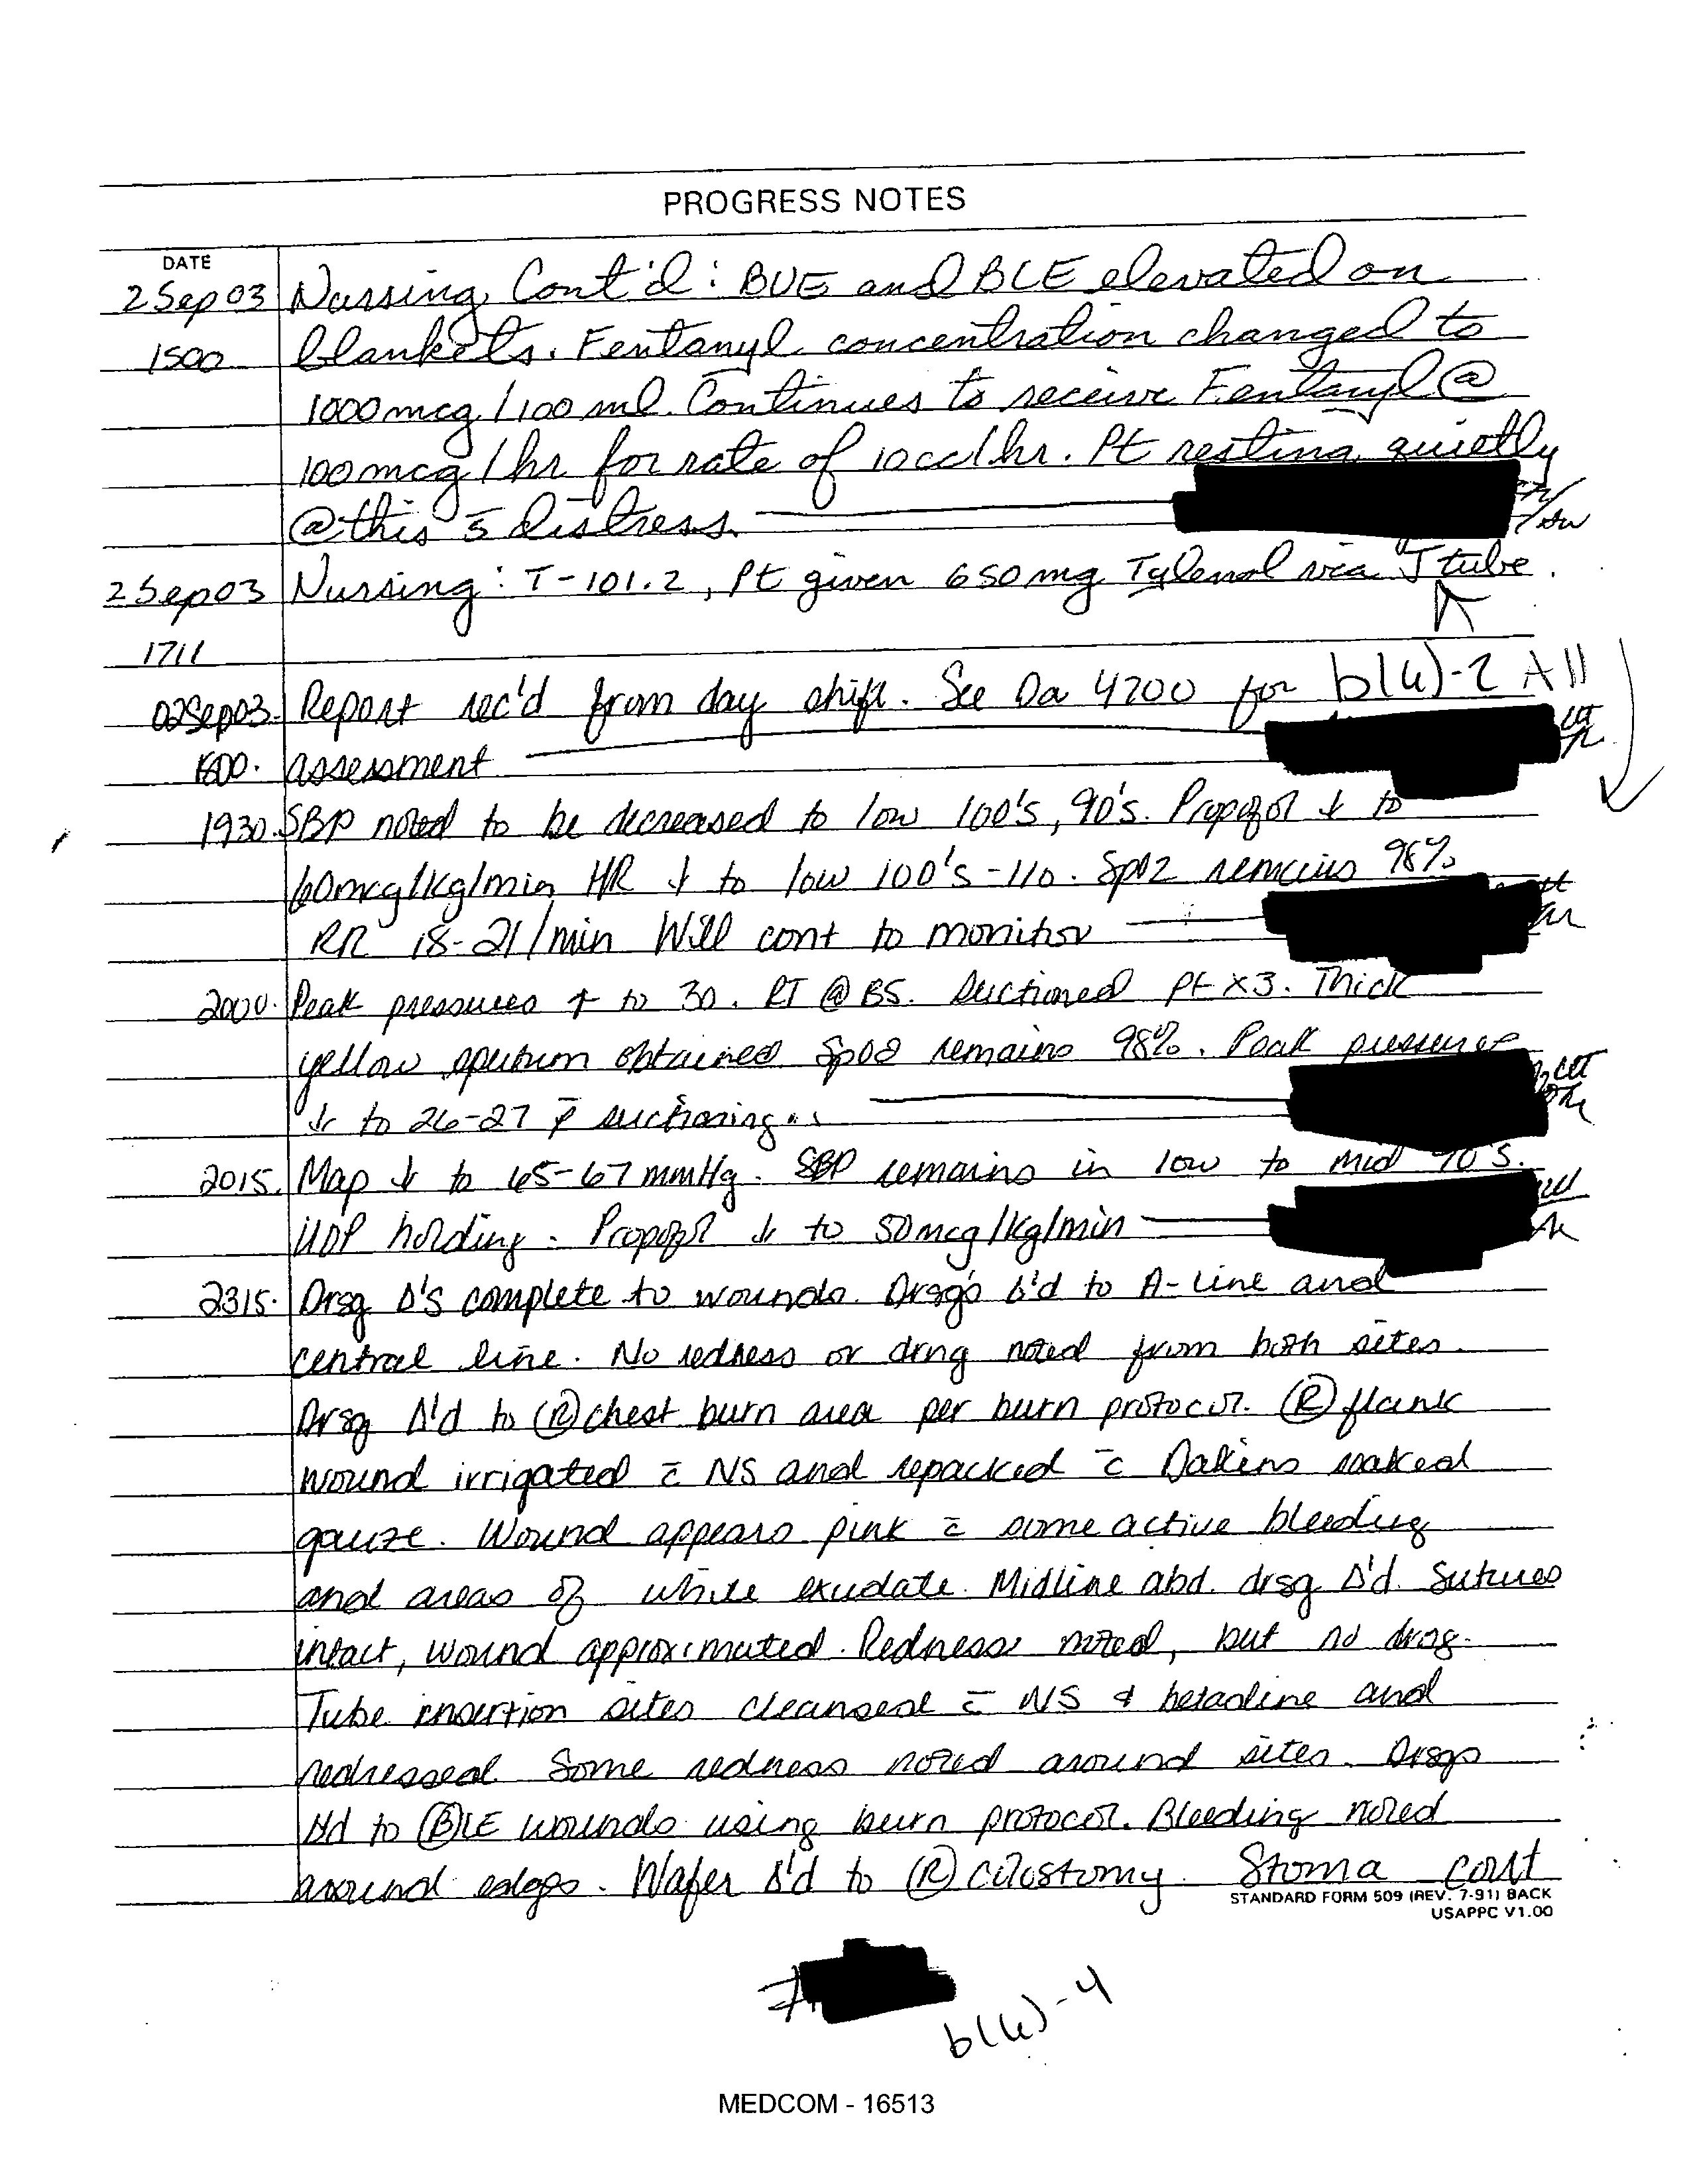 PROGRESS NOTES
DATE
2 Sep 03 Nursing Cont'd: BUE and BLE elevated on
1500 blankets. Fentanyl concentration changed to
1000 mcg/100 ml. Continues to receive Fentanyl @
100 mcg/hr for rate of 10 cc/hr. Pt resting quietly
@ this s̄ distress.
2 Sep 03 Nursing: T-101.2, Pt given 650 mg Tylenol via J tube.
1711
02 Sep 03. Report rec'd from day shift. See Da 4700 for b(6)-2 All
assessment
1930. SBP noted to be decreased to low 100's, 90's. Propofol ↓ to
60mcg/kg/min HR ↓ to low 100's-110. SpO2 remains 98%
RR 18-21/min Will cont to monitor
2000. Peak pressures ↑ to 30. RT @ BS. Suctioned Pt x3. Thick
yellow sputum obtained SpO2 remains 98%. Peak pressures
↓ to 26-27 p̄ suctioning.
2015. Map ↓ to 65-67 mmHg. SBP remains in low to mid 90's.
UOP holding. Propofol ↓ to 50mcg/kg/min
2315. Drsg Δ's complete to wounds. Drsgs Δ'd to A-line and
central line. No redness or drng noted from both sites.
Drsg Δ'd to (R) chest burn area per burn protocol. (R) flank
wound irrigated c̄ NS and repacked c̄ Dakins soaked
gauze. Wound appears pink c̄ some active bleeding
and areas of white exudate. Midline abd. drsg Δ'd. Sutures
intact, wound approximated. Redness noted, but no drng.
Tube insertion sites cleansed c̄ NS & betadine and
redressed Some redness noted around sites. Drsgs
Δ'd to (B)LE wounds using burn protocol. Bleeding noted
around edges. Wafer Δ'd to (R) colostomy. Stoma cont
STANDARD FORM 509 (REV. 7-91) BACK
USAPPC V1.00
b(6)-4
MEDCOM - 16513